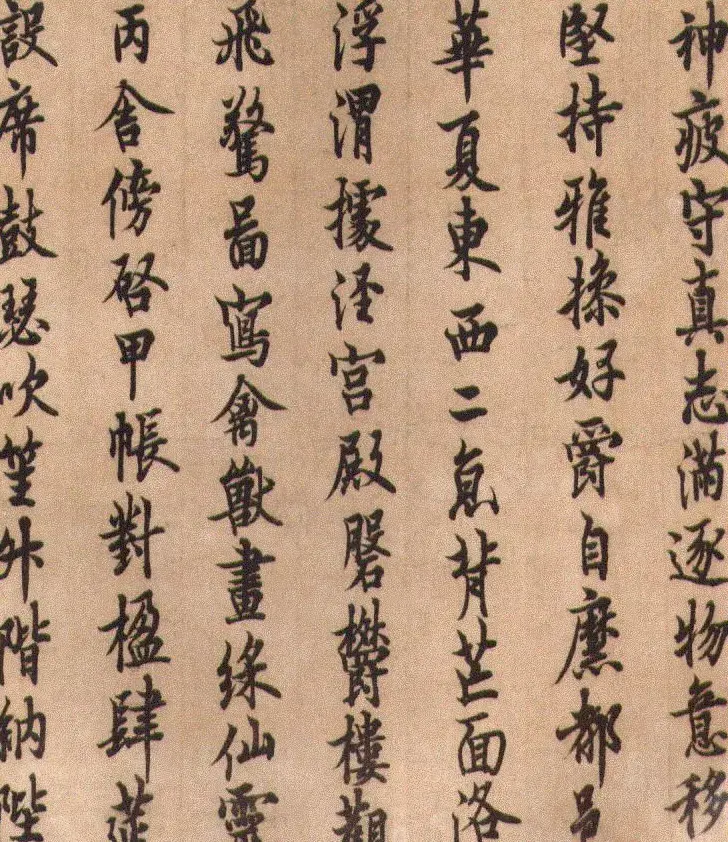 神疲守真志滿逐物意移
堅持雅操好爵自縻都邑
華夏東西二京背芒面洛
浮渭據涇宮殿磐欝樓觀
飛驚啚寫禽獸畫綵仙靈
丙舍傍啓甲帳對楹肆莚
設席鼓瑟吹笙升階納陛